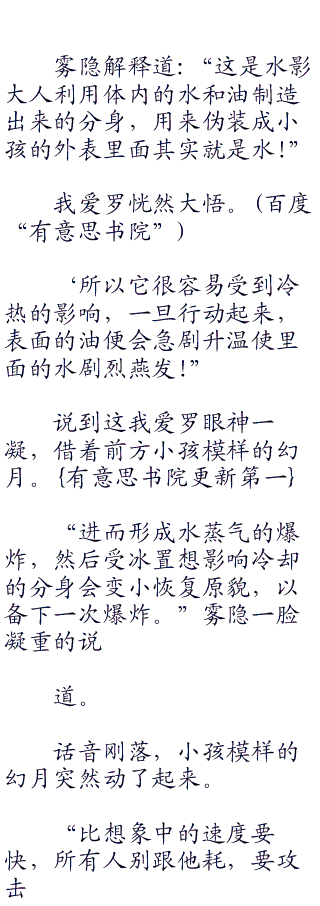 雾隐解释道：“这是水影
大人利用体内的水和油制造
出来的分身，用来伪装成小
孩的外表里面其实就是水！”
我爱罗恍然大悟。(百度
“有意思书院”)
‘所以它很容易受到冷
热的影响，一旦行动起来，
表面的油便会急剧升温使里
面的水剧烈燕发！”
说到这我爱罗眼神一
凝，借着前方小孩模样的幻
月。{有意思书院更新第一}
“进而形成水蒸气的爆
炸，然后受冰置想影响冷却
的分身会变小恢复原貌，以
备下一次爆炸。”雾隐一脸
凝重的说
道。
话音刚落，小孩模样的
幻月突然动了起来。
“比想象中的速度要
快，所有人别跟他耗，要攻
击